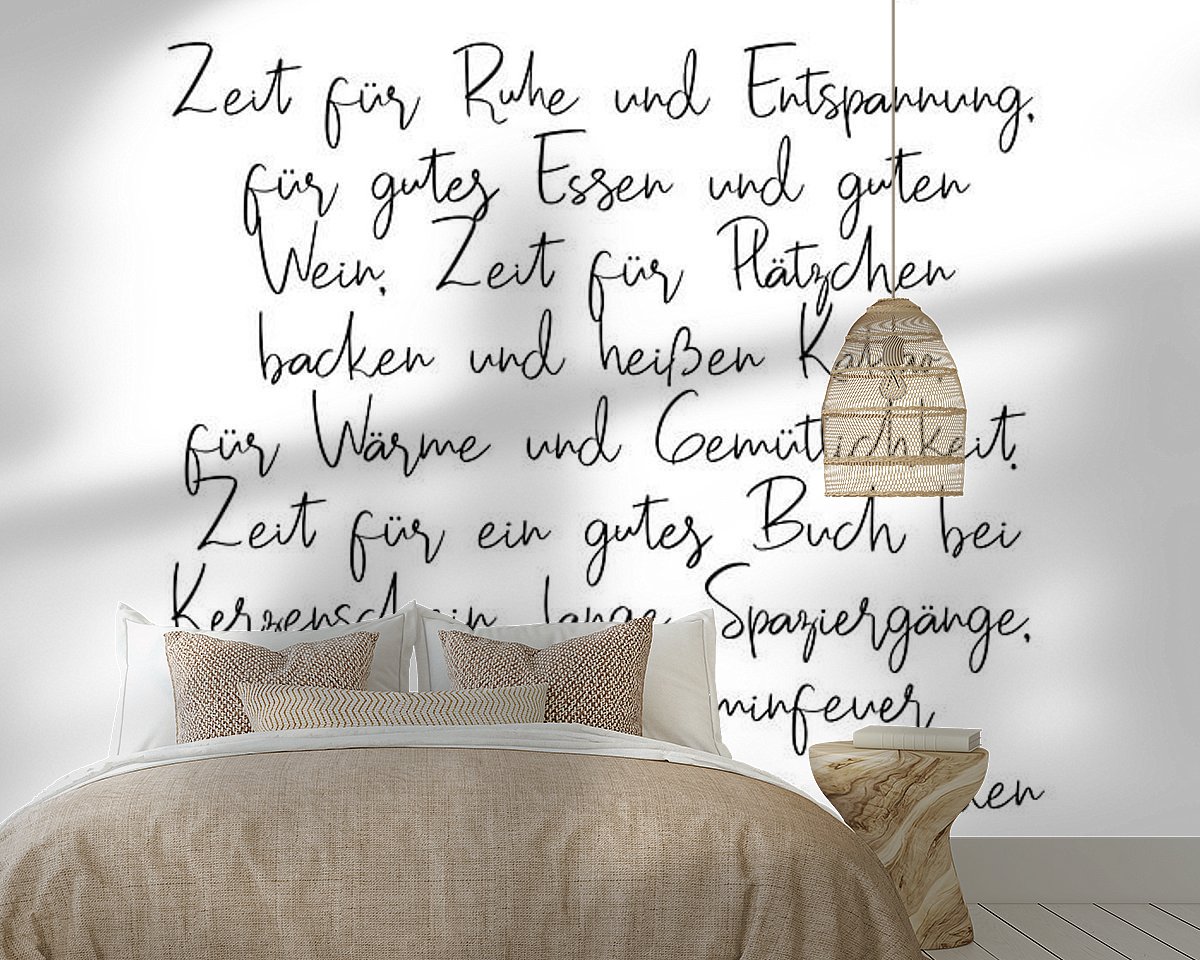 Zeit für Ruhe und Entspannung,
für gutes Essen und guten
Wein. Zeit für Plätzchen
backen und heißen Kakao,
für Wärme und Gemütlichkeit.
Zeit für ein gutes Buch bei
Kerzenschein, lange Spaziergänge,